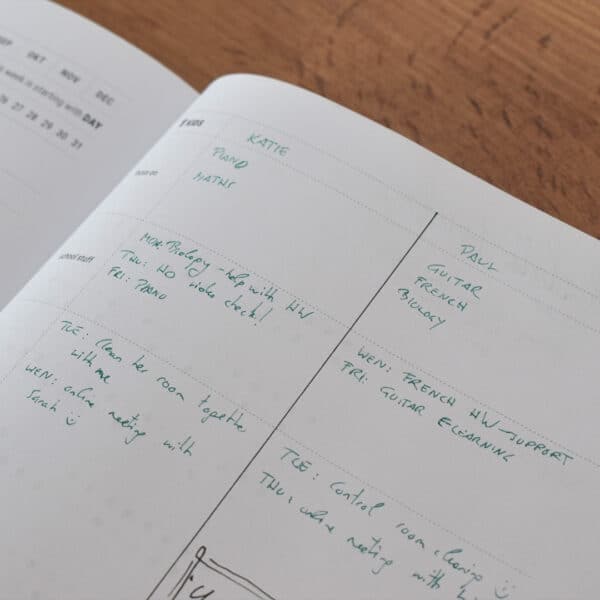 OKT NOV DEC
week is starting with DAY
26 27 28 29 30 31
KIDS
KATIE
PIANO
MATHS
school stuff
MON: Biology - help with HW
THU: HO video check!
FRI: PIANO
TUE: Clean her room together
with me
WEN: online meeting with
Sarah
PAUL
GUITAR
FRENCH
BIOLOGY
WEN: FRENCH HW-SUPPORT
FRI: GUITAR ELEARNING
TUE: Control room cleaning
THU: online meeting with